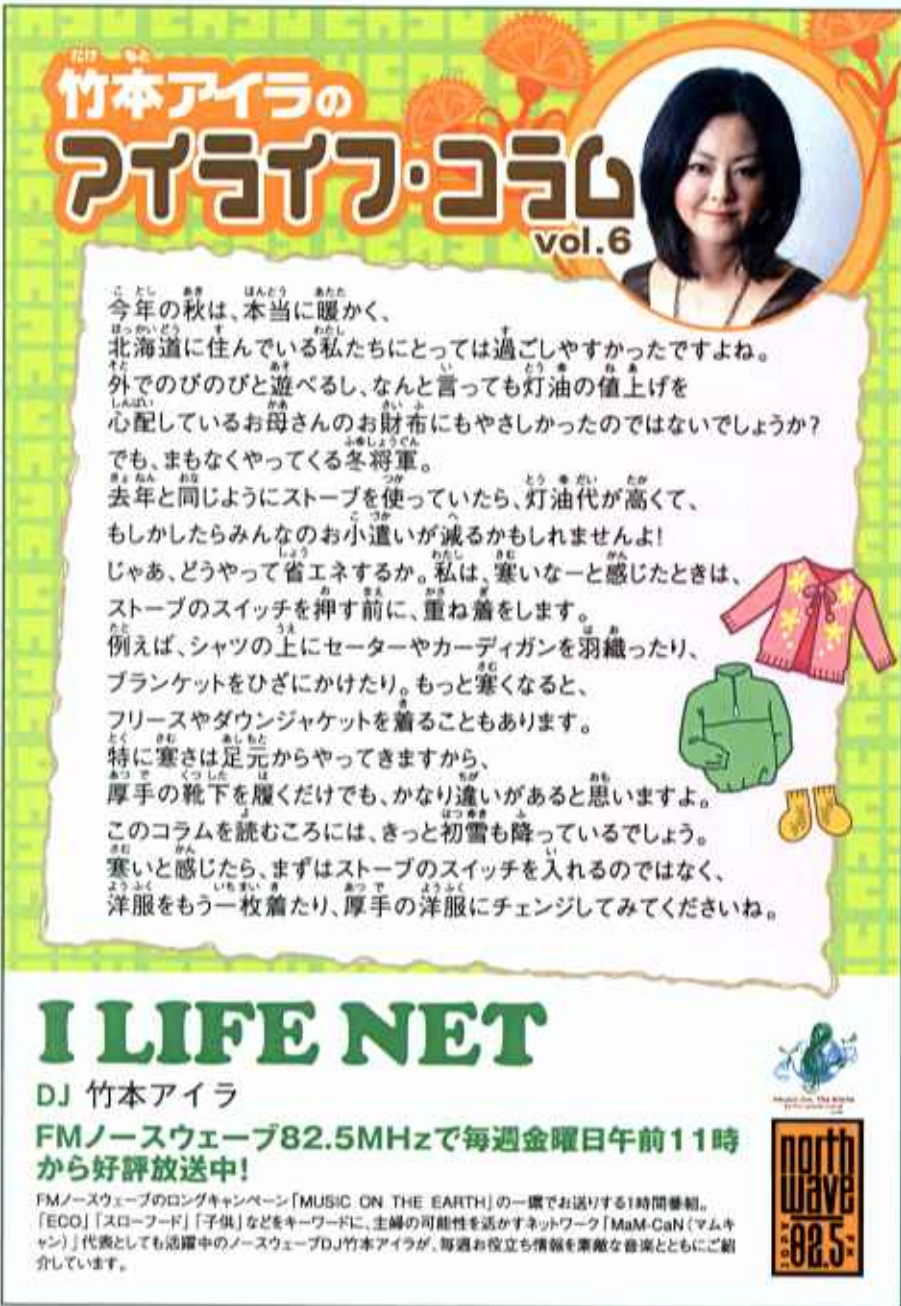 竹本アイラの
アイライフ・コラム
vol.6
今年の秋は、本当に暖かく、
北海道に住んでいる私たちにとっては過ごしやすかったですよね。
外でのびのびと遊べるし、なんと言っても灯油の値上げを
心配しているお母さんのお財布にもやさしかったのではないでしょうか?
でも、まもなくやってくる冬将軍。
去年と同じようにストーブを使っていたら、灯油代が高くて、
もしかしたらみんなのお小遣いが減るかもしれませんよ!
じゃあ、どうやって省エネするか。私は、寒いなーと感じたときは、
ストーブのスイッチを押す前に、重ね着をします。
例えば、シャツの上にセーターやカーディガンを羽織ったり、
ブランケットをひざにかけたり。もっと寒くなると、
フリースやダウンジャケットを着ることもあります。
特に寒さは足元からやってきますから、
厚手の靴下を履くだけでも、かなり違いがあると思いますよ。
このコラムを読むころには、きっと初雪も降っているでしょう。
寒いと感じたら、まずはストーブのスイッチを入れるのではなく、
洋服をもう一枚着たり、厚手の洋服にチェンジしてみてくださいね。
I LIFE NET
DJ 竹本アイラ
FMノースウェーブ82.5MHzで毎週金曜日午前11時
から好評放送中!
FMノースウェーブのロングキャンペーン「MUSIC ON THE EARTH」の一環でお送りする1時間番組。
「ECO」「スローフード」「子供」などをキーワードに、主婦の可能性を活かすネットワーク「MaM-CaN(マムキ
ャン)」代表としても活躍中のノースウェーブDJ竹本アイラが、毎週お役立ち情報を素敵な音楽とともにご紹
介しています。
Music On The Earth
north
wave
82.5